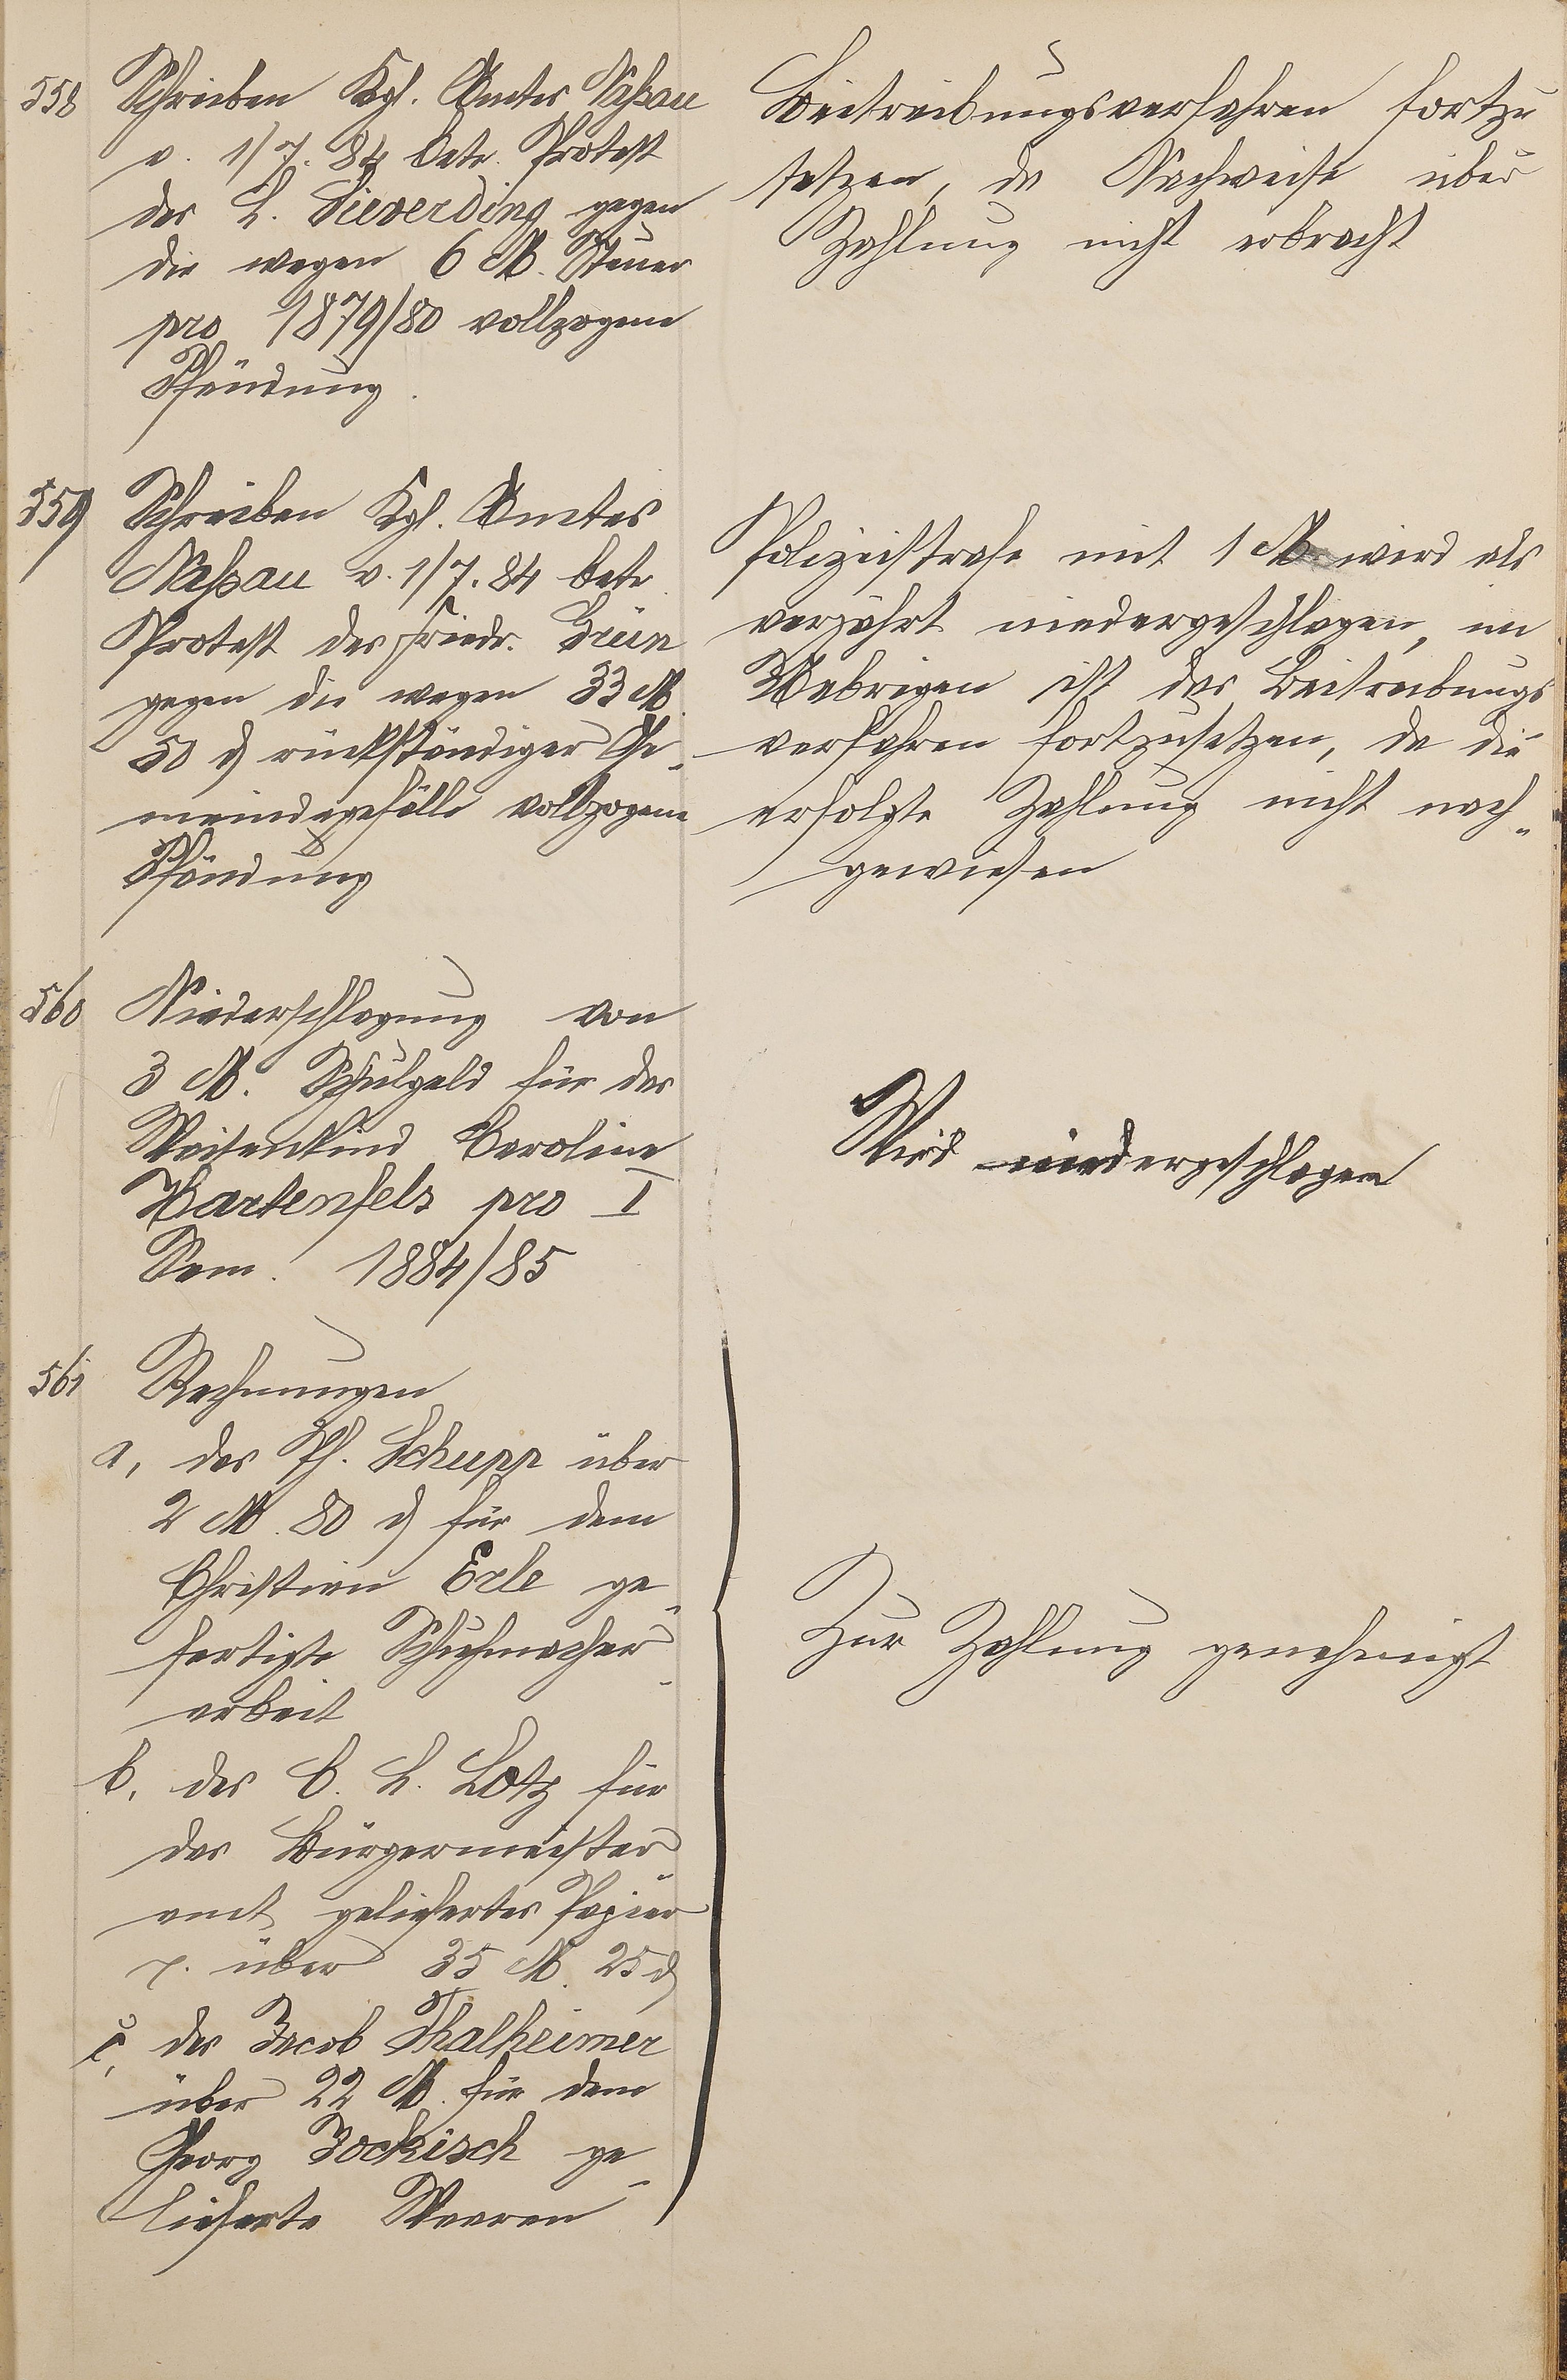 558
Schreiben Kgl. Amtes Naßau
v. 1/7. 84 betr. Protest
des L. Sieverding gegen
die wegen 6 M. Steuer
pro 1879/80 vollzogene
Pfändung.
Beitreibungsverfahren fortzu
setzen, da Nachweise über
Zahlung nicht erbracht
559
Schreiben Kgl. Amtes
Naßau v. 1/7. 84 betr.
Protest des Friedr. Grün
gegen die wegen 33 M.
50 ₰ rückständiger Ge-
meindegefälle vollzogene
Pfändung
Polizeistrafe mit 1 M. wird als
verjährt niedergeschlagen, im
Uebrigen ist das Beitreibungs
verfahren fortzusetzen, da die
erfolgte Zahlung nicht nach-
gewiesen
560
Niederschlagung von
3 M. Schulgeld für das
Waisenkind Caroline
Hartenfels pro I
Sem. 1884/85
Wird niedergeschlagen
561
Rechnungen
a, des Ph. Schupp über
2 M. 80 ₰ für dem
Christian Erle ge-
fertigte Schuhmacher-
arbeit
b, des C. H. Lotz für
das Bürgermeister-
amt geliefertes Papier
p. über 35 M. 25 ₰
c, des Jacob Thalheimer
über 22 M. für dem
Georg Jockisch ge-
lieferte Waaren
Zur Zahlung genehmigt